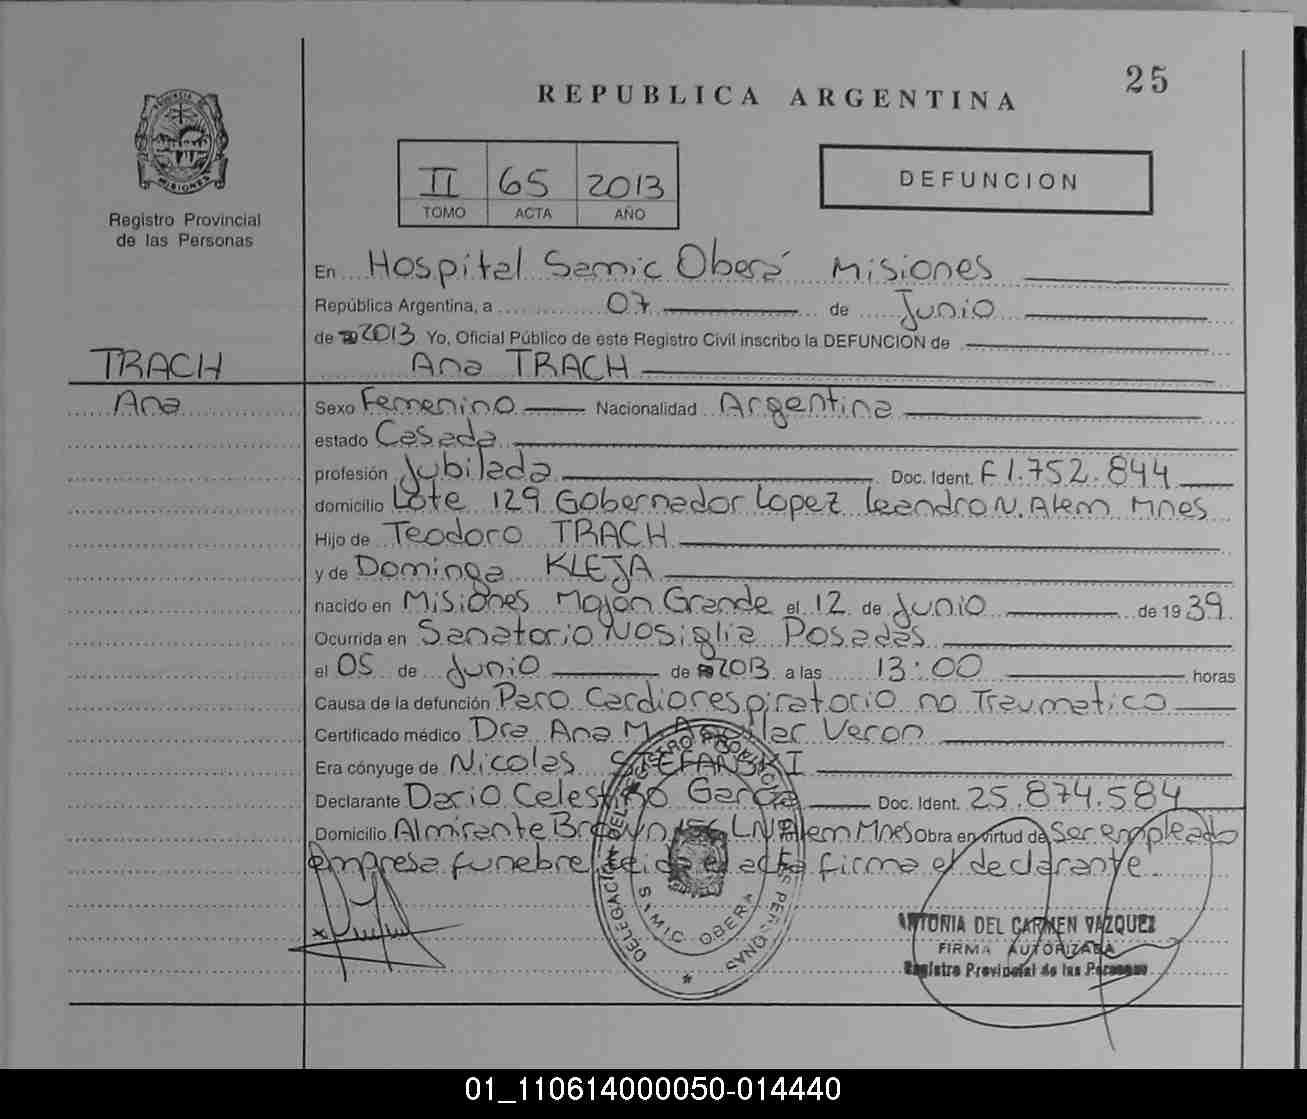 25
REPUBLICA ARGENTINA
PROVINCIA DE MISIONES
Registro Provincial
de las Personas
II 65 2013
TOMO ACTA AÑO
DEFUNCION
En Hospital Samic Oberá Misiones
República Argentina, a 07 de Junio
de 2013 Yo, Oficial Público de este Registro Civil inscribo la DEFUNCION de
TRACH Ana TRACH
Ana Sexo Femenino Nacionalidad Argentina
estado Casada
profesión Jubilada Doc. Ident. F 1.752.844
domicilio Lote 129 Gobernador Lopez Leandro N. Alem Mnes
Hijo de Teodoro TRACH
y de Dominga KLEJA
nacido en Misiones Mojon Grande el 12 de Junio de 1939.
Ocurrida en Sanatorio Nosiglia Posadas
el 05 de Junio de 2013 a las 13:00 horas
Causa de la defunción Paro Cardiorespiratorio no Traumatico
Certificado médico Dra Ana M. Aguilar Veron
Era cónyuge de Nicolas STEFAÑSKI
Declarante Dario Celestino Garcia Doc. Ident. 25.874.584
Domicilio Almirante Brown LN Alem Mnes Obra en virtud de Ser empleado
empresa funebre leida el acta firma el declarante.
DELEGACIÓN DEL REGISTRO PROVINCIAL DE LAS PERSONAS
SAMIC OBERA
ANTONIA DEL CARMEN VAZQUEZ
FIRMA AUTORIZADA
Registro Provincial de las Personas
01_110614000050-014440